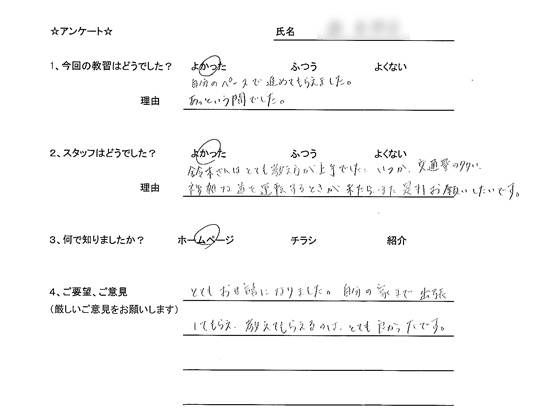 ☆アンケート☆ 氏名
1、今回の教習はどうでした? よかった ふつう よくない
自分のペースで進めてもらえました。
理由 あっという間でした。
2、スタッフはどうでした? よかった ふつう よくない
鈴木さんはとても教え方が上手でした。いつか、交通量の多い、
理由 複雑な道を運転するときが来たら、また是非お願いしたいです。
3、何で知りましたか? ホームページ チラシ 紹介
4、ご要望、ご意見 とてもお世話になりました。自分の家まで出張
(厳しいご意見をお願いします)
してもらえ、教えてもらえるのは、とても良かったです。